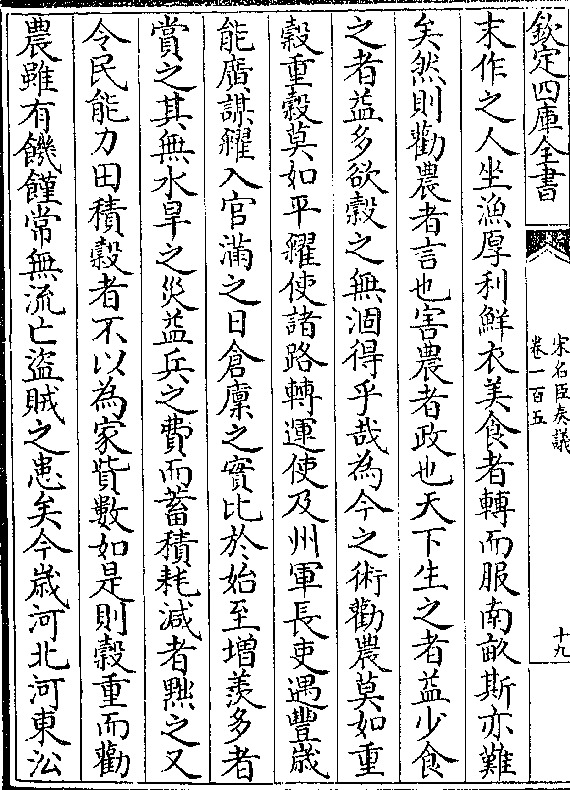 欽定四庫全書
宋名臣奏議
卷一百五
十九
末作之人坐漁厚利鮮衣美食者轉而服南畝斯亦難
矣然則勸農者言也害農者政也天下生之者益少食
之者益多欲穀之無涸得乎哉為今之術勸農莫如重
穀重穀莫如平糴使諸路轉運使及州軍長吏遇豐歲
能廣謀糴入官滿之日倉廩之實比於始至增羨多者
賞之其無水旱之災益兵之費而蓄積耗減者黜之又
令民能力田積穀者不以為家貲數如是則穀重而勸
農雖有饑饉常無流亡盜賊之患矣今歲河北河東㳂